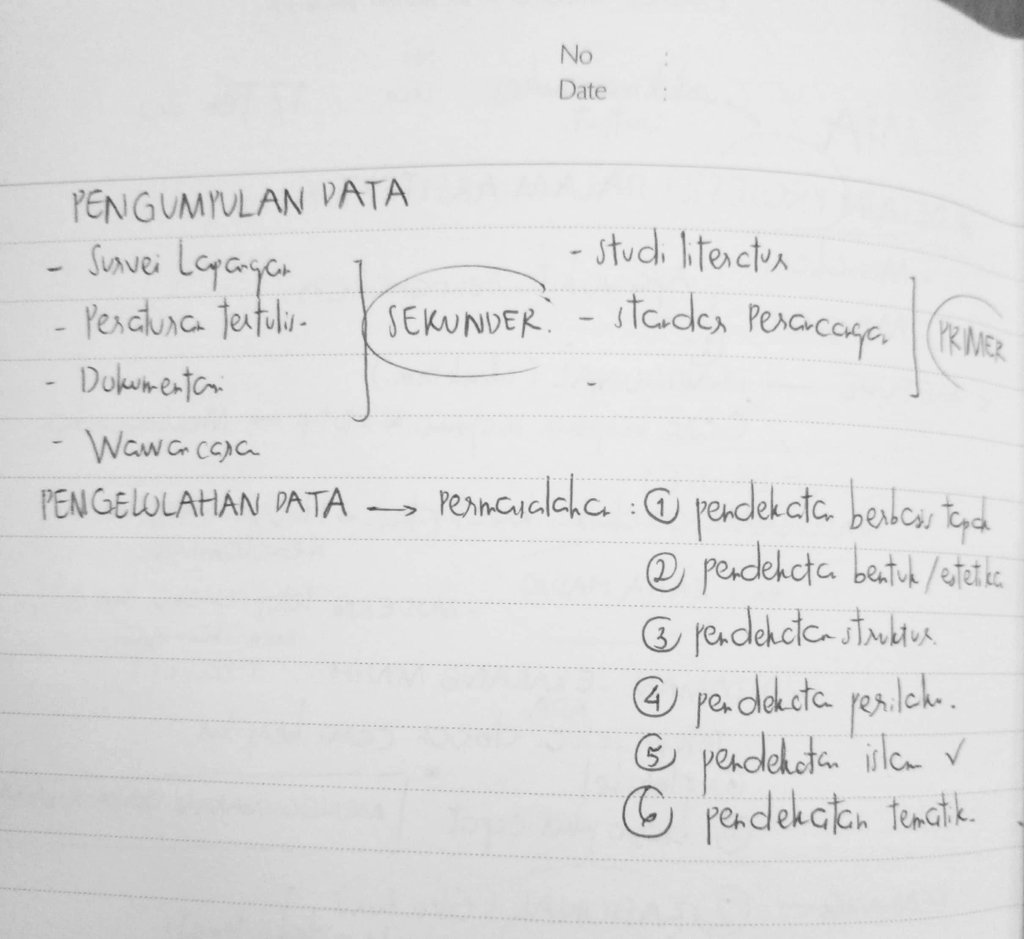 No :
Date :
PENGUMPULAN DATA
- Survei Lapangan
- Peraturan Tertulis.
- Dokumentasi
- Wawancara
SEKUNDER.
- studi literatur
- standar Perancangan
-
PRIMER
PENGELOLAHAN DATA → Permasalahan : ① pendekatan berbasis tapak
② pendekatan bentuk/estetika
③ pendekatan struktur.
④ pendekatan perilaku.
⑤ pendekatan islam ✓
⑥ pendekatan tematik.